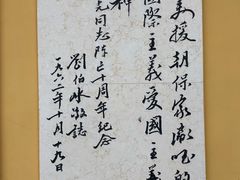 美援朝保家衛國的
國際主義愛國主義
神
光同志陈亡十周年紀念
劉伯承敬誌
一九六二年十月十九日